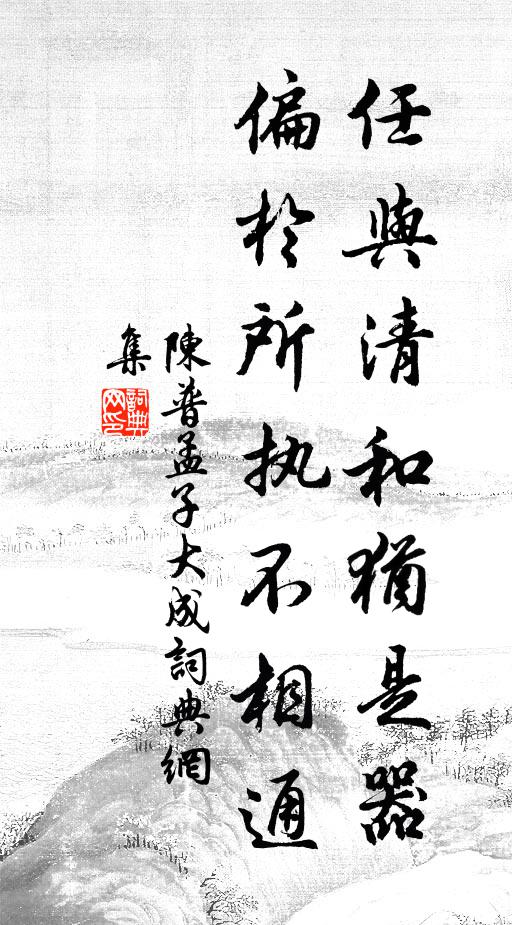 任與清和猶是器
偏於所执不相通
陳普孟子大成詞典網
集
詞典
网印